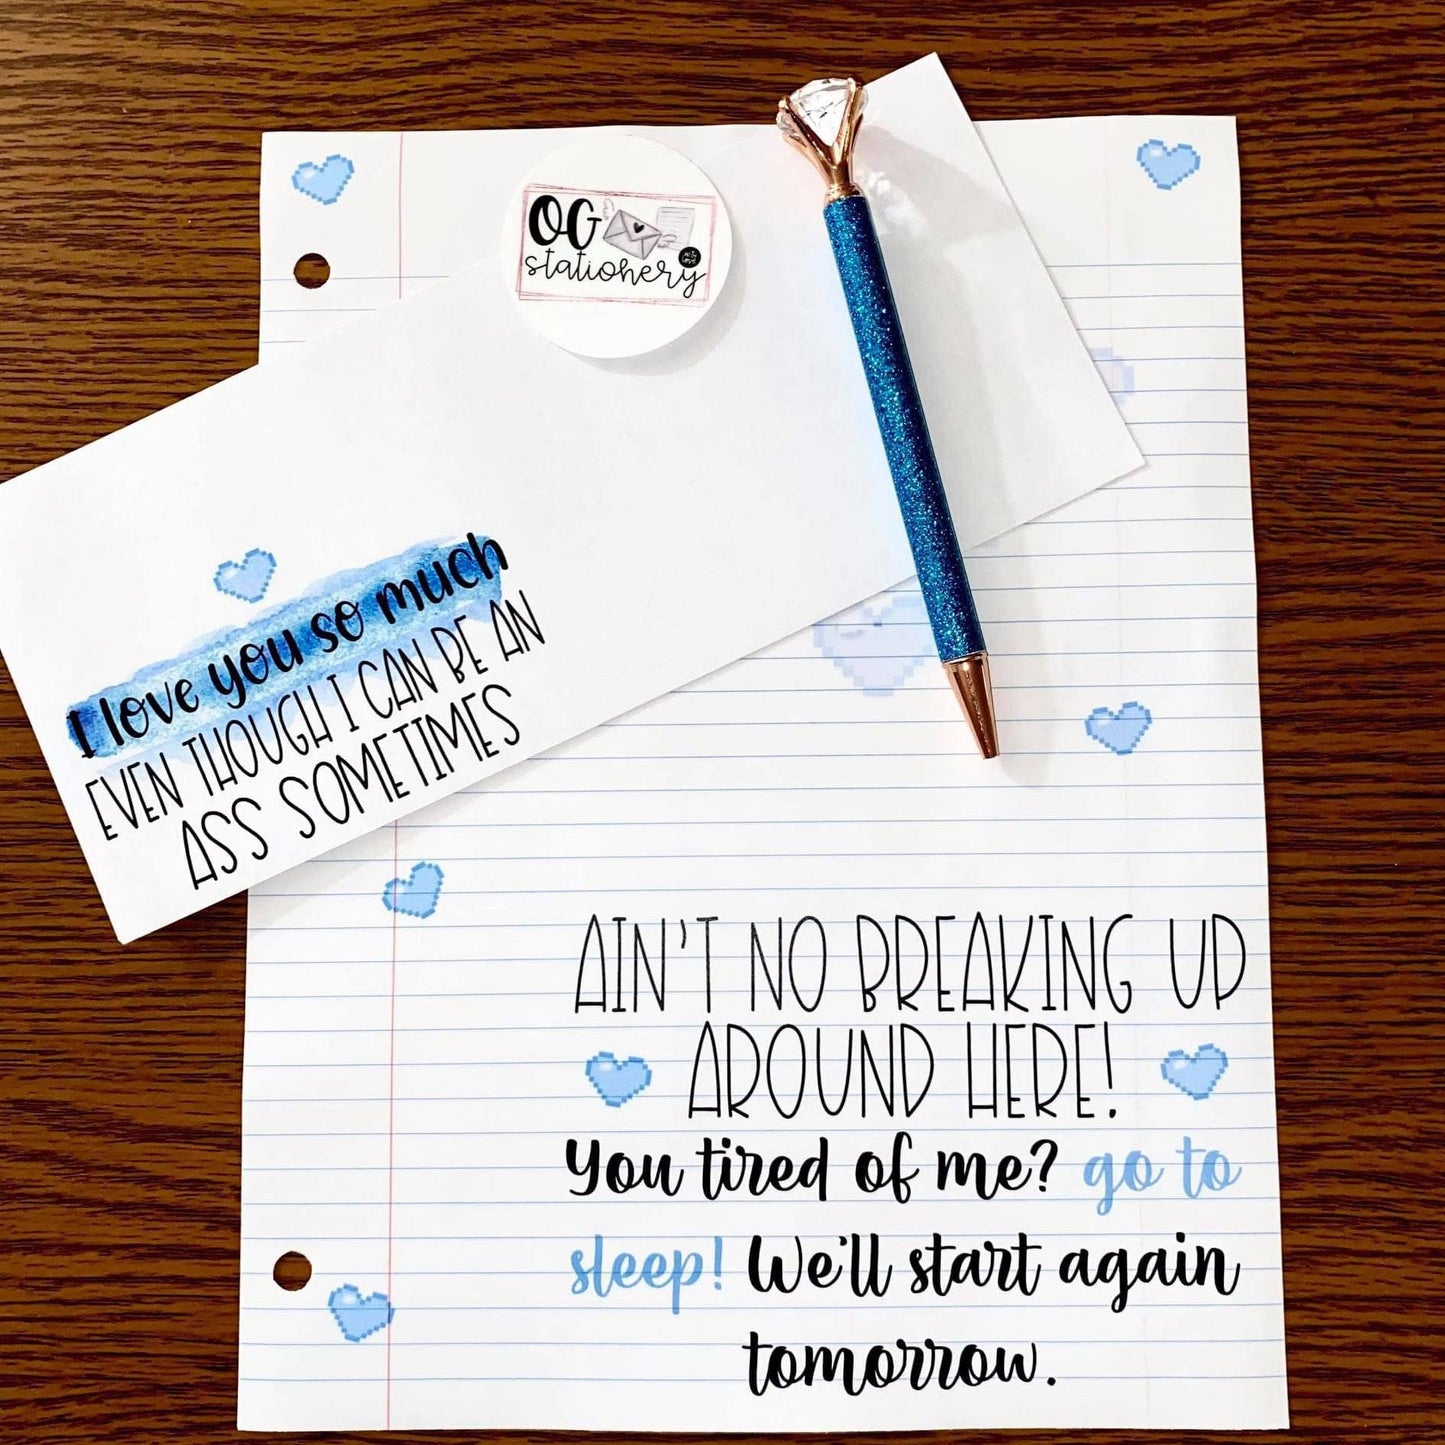 OG
stationery
I love you so much
EVEN THOUGH I CAN BE AN
ASS SOMETIMES
AIN'T NO BREAKING UP
AROUND HERE!
You tired of me? go to
sleep! We'll start again
tomorrow.